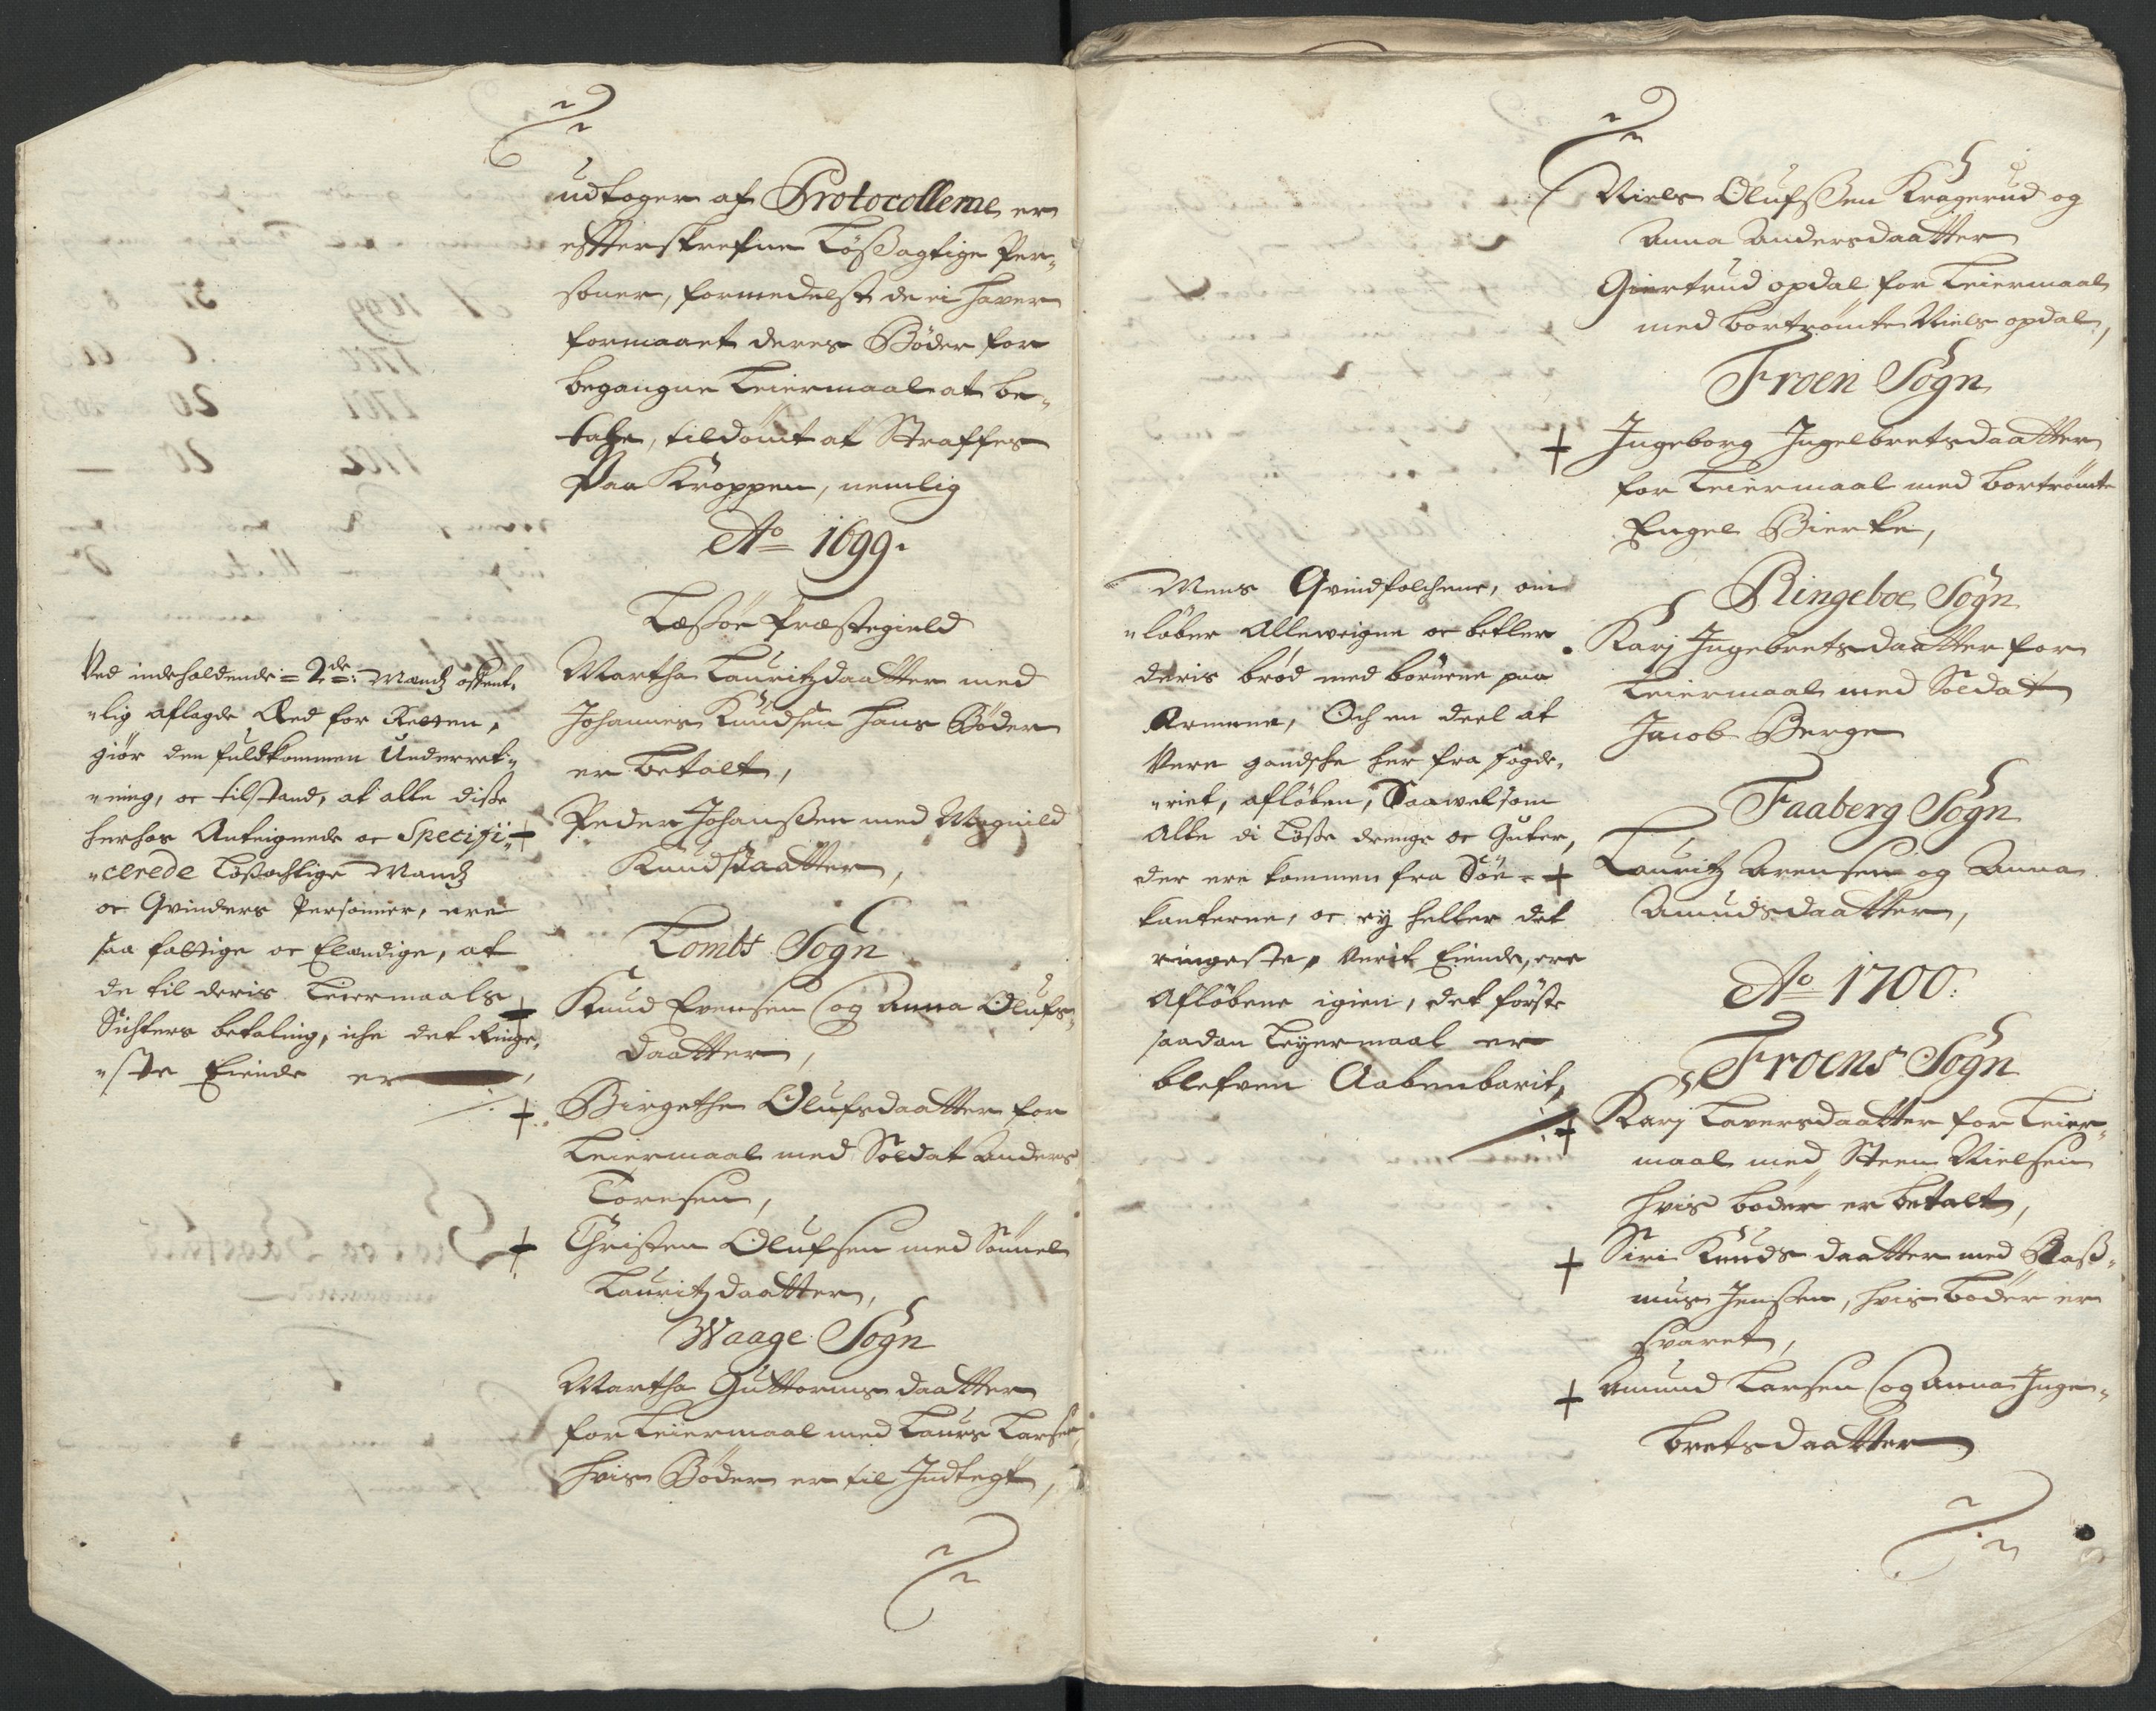 udtoger af Protocollerne er
effterskrefne Løßagtige Per„
soner, formedelst de ei haver
formaaet deres Bøder for
begangne Leiermaal at be„
tahle, tildømt at Straffes
Paa Kroppen, nemlig
Ao 1699.
Læssøe Præstegield
Martha Lauritzdaatter med
Johannes Knudsen hans Bøder
er betalt,
Peder Johanßen med Magnild
Knudsdaatter,
Lombs Sogn
Knud Evensen og Anna Olufs„
daatter,
Birgethe Olufsdaatter for
Leiermaal med Soldat Anders
Toresen,
Christen Olufsen med Sønnel
Lauritzdaatter,
Waage Sogn
Martha Guttorms daatter
for Leiermaal med Laurs Larsen,
hvis Bøder er til Indtegt,
Ved indeholdende = 2de =: Mands offent„
„lig aflagde Æed for Retten,
giør den fuldkommen Underret„
„ning, oc tilstand, at alle disse
herhos Antegnede oc Specifi„
„cerede Løsachtige Mands
oc Qvinders Personner, ere
saa fattige oc Elændige, at
de til deris Leiermaals
Sichters betaling, iche det Ringe„
„ste Eiende er
Mens Qvindfolchene, om
„løber Alleweigne oc betler
deris brød med børnene paa
Armene, Och en deel at
Vere gandsche her fra fogde„
„riet, afløben, Saawelsom
Alle di Løse drenge oc Gutter,
der ere kommen fra Søe„
kanterne, oc ey heller det
ringeste, Verit Eiende, ere
Afløbene igien, det første
saadan Leyermaal er
blefven Aabenbarit,
Niels Olufßen Kragerud og
Anna Andersdaatter
Giertrud opdal for Leiermaal
med bortrømte Niels opdal,
Froen Sogn
Ingeborg Ingelbretsdaatter
for Leiermaal med bortrømte
Engel Bierke,
Ringeboe Sogn
Karj Ingebretsdaatter for
Leiermaal med Soldat
Jacob Berge
Faaberg Sogn
Lauritz Arensen og Anna
Amundsdaatter,
Ao 1700:
Froens Sogn
Karj Laversdaatter for Leier„
maal med Steen Nielsen
hvis bøder er betalt,
Siri Knuds daatter med Raß„
mus Jenßen, hvis bøder er
svaret,
Amund Larsen og Anna Inge„
bretsdaatter